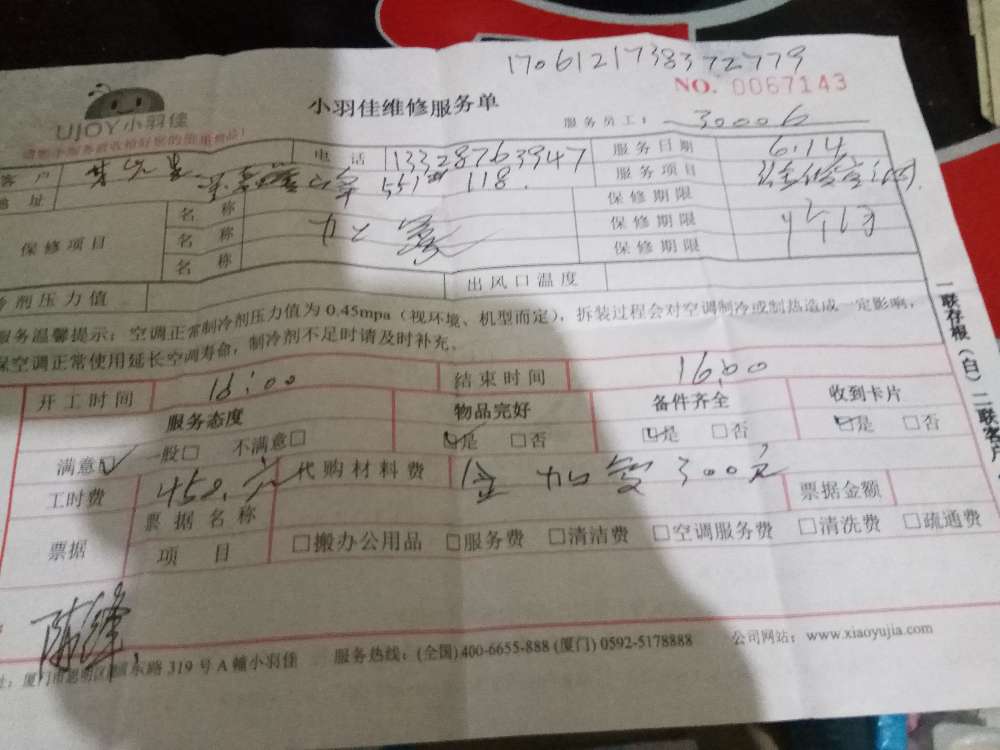 1706121738372779
NO. 0067143
UJOY小羽佳
小羽佳维修服务单
服务员工: 30006
客户 电话 13328763947 服务日期 6.14
地址 551 118. 服务项目
保修项目 名称 保修期限
名称 加雪 保修期限 1年1月
名称 保修期限
剂压力值 出风口温度
服务温馨提示: 空调正常制冷剂压力值为 0.45mpa (视环境、机型而定), 拆装过程会对空调制冷或制热造成一定影响,
保空调正常使用延长空调寿命, 制冷剂不足时请及时补充。
开工时间 16:00 结束时间 16:00
服务态度 物品完好 备件齐全 收到卡片
满意☑ 一般□ 不满意□ ☑是 □否 ☑是 □否 ☑是 □否
工时费 450.元 代购材料费 300元 票据金额
票据 票据名称
项目 □搬办公用品 □服务费 □清洁费 □空调服务费 □清洗费 □疏通费
厦门市思明区 东路 319 号 A 幢小羽佳 服务热线: (全国) 400-6655-888 (厦门) 0592-5178888 公司网站: www.xiaoyujia.com
一联存根(白) 二联客户